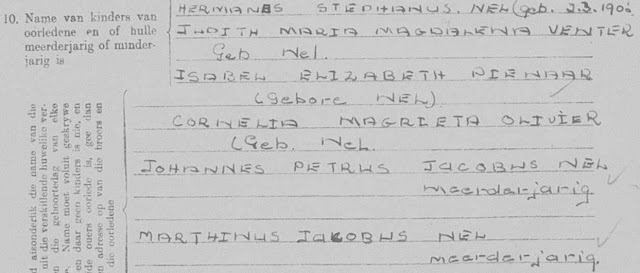 10. Name van kinders van
oorledene en of hulle
meerderjarig of minder-
jarig is
HERMANUS STEPHANUS. NEL (geb. 2.3.190
JUDITH MARIA MAGDALENA VENTER
Geb Nel.
ISABEL ELIZABETH PIENAAR
(Gebore NEL)
CORNELIA MAGRIETA OLIVIER
(Geb. Nel.
JOHANNES PETRUS JACOBUS NEL
meerderjarig
MARTHINUS JACOBUS NEL
meerderjarig.
d afsonderlik die name van die
uit die verskillende huwelike ver-
en die geboortedag van elke
Name moet voluit geskrywe
en daar geen kinders is nie, en
de ouers oorlede is, gee dan
en adresse op van die broers en
die oorledene